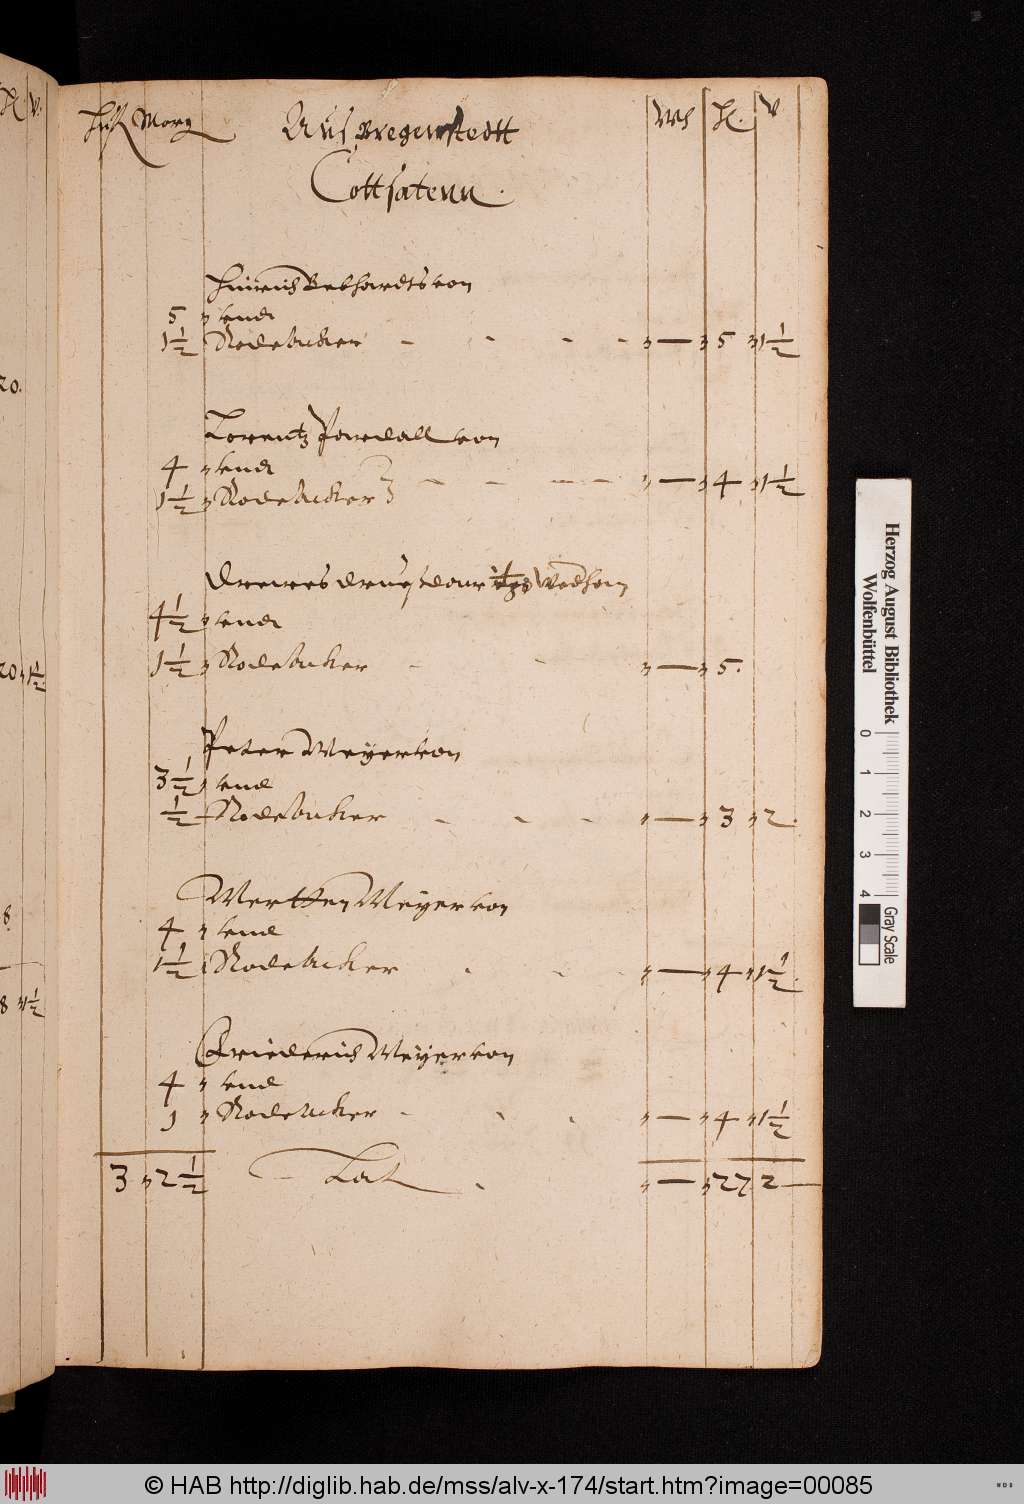 Huf Morg Aus Bregenstedtt Wh H. v
Cottsatenn.
Hinrich Gebhardts von
5 " Lend
1 1/2 Rodeacker - - - - " — " 5 " 1 1/2
Lorentz Pardall von
4 " Lend
1 1/2 " Rodeacker - - - - " — " 4 " 1 1/2
Drewes
4 1/2 " Lend
1 1/2 " Rodeacker - - " — " 5.
Peter Meyer von
3 1/2 " Lend
1/2 Rodeacker - - - " — " 3 " 2.
Mertten Meyer von
4 " Lend
1 1/2 Rodeacker - - " — " 4 " 1 1/2
Friederich Meyer von
4 " Lend
1 " Rodeacker - - - " — " 4 " 1 1/2
3 " 2 1/2 Lat. " — " 27 2 —
20.
20 " 1 1/2
8
8 " 1 1/2
Herzog August Bibliothek
Wolfenbüttel
0 1 2 3 4
Gray Scale
© HAB http://diglib.hab.de/mss/alv-x-174/start.htm?image=00085